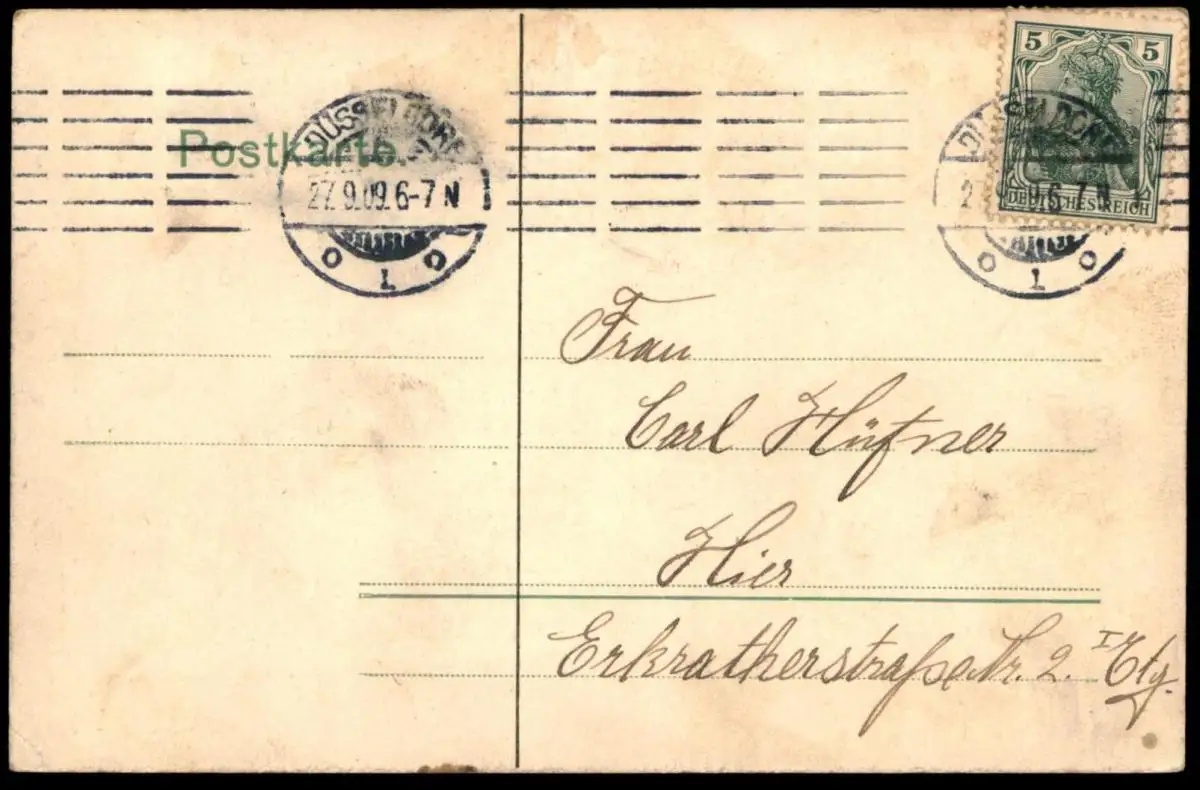 Postkarte.
DÜSSELDORF
27.9.09.6-7 N
o 1. o
5 5
DEUTSCHES REICH
DÜSSELDORF
2 9 6-7 N
o 1 o
Frau
Carl Hüfner
Hier
Erkratherstraße Nr. 2. I Etg.